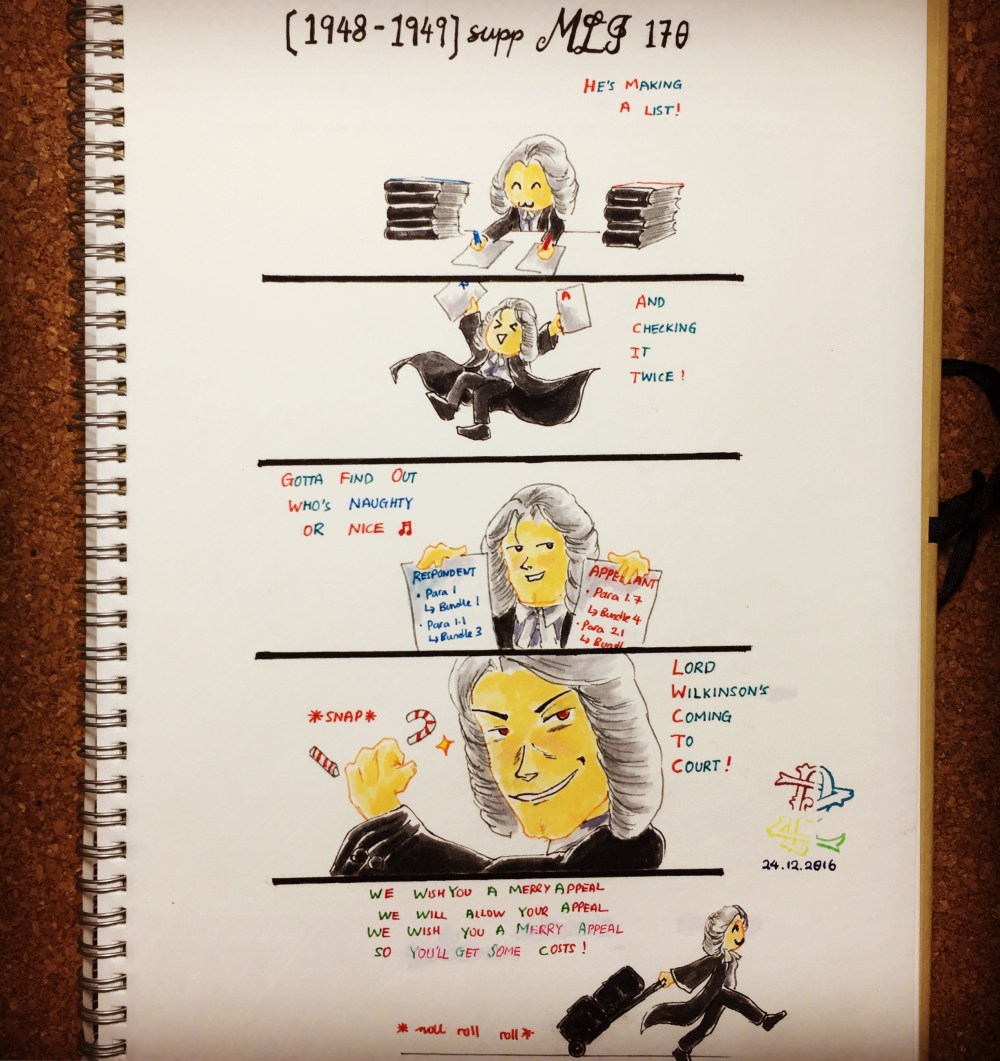 [1948-1949] supp MLJ 170
HE'S MAKING
A LIST!
R
A
AND
CHECKING
IT
TWICE!
GOTTA FIND OUT
WHO'S NAUGHTY
OR NICE ♫
RESPONDENT
• Para 1
↳ Bundle 1
• Para 1.1
↳ Bundle 3
APPELLANT
• Para 1.7
↳ Bundle 4
• Para 2.1
↳ Bundl
*SNAP*
LORD
WILKINSON'S
COMING
TO
COURT!
24.12.2016
WE WISH YOU A MERRY APPEAL
WE WILL ALLOW YOUR APPEAL
WE WISH YOU A MERRY APPEAL
SO YOU'LL GET SOME COSTS!
* roll roll roll *